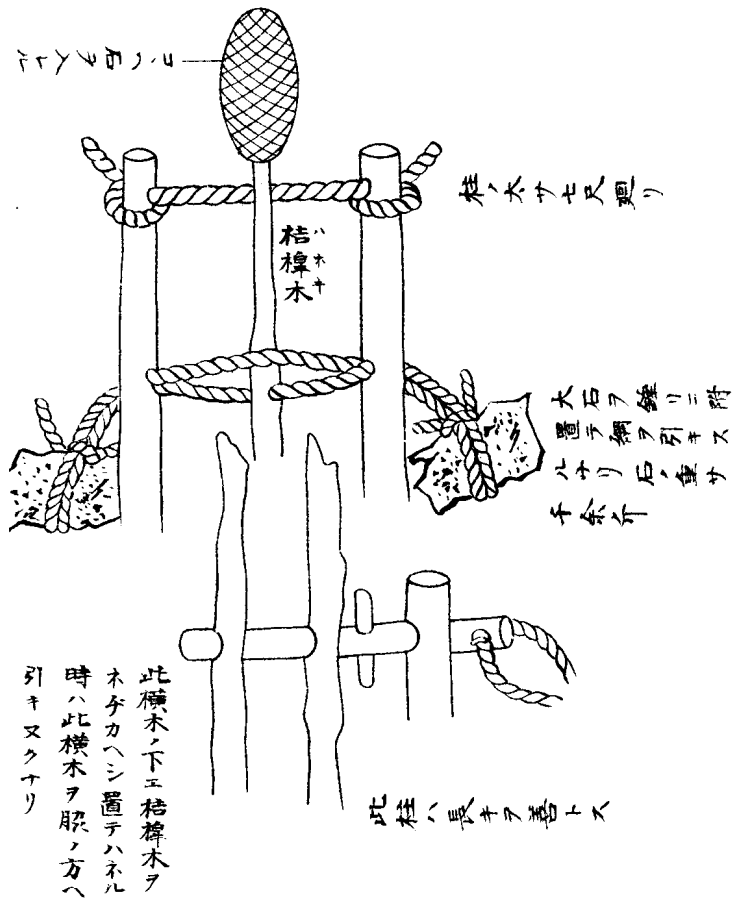 コヽヘ石ヲ入レル
桔槹木
ハネキ
柱ノ太サ七尺廻リ
大石ヲ錘リニ附
置テ綱ヲ引キス
ルナリ石ノ重サ
千余斤
此横木ノ下エ桔槹木ヲ
ネヂカヘシ置テハネル
時ハ此横木ヲ脇ノ方ヘ
引キヌクナリ
此柱ハ長キヲ善トス